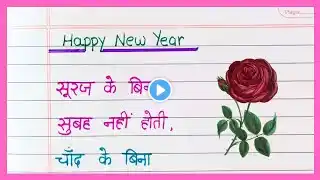 Happy New Year
सूरज के
सुबह नहीं होती,
चाँद के बिना